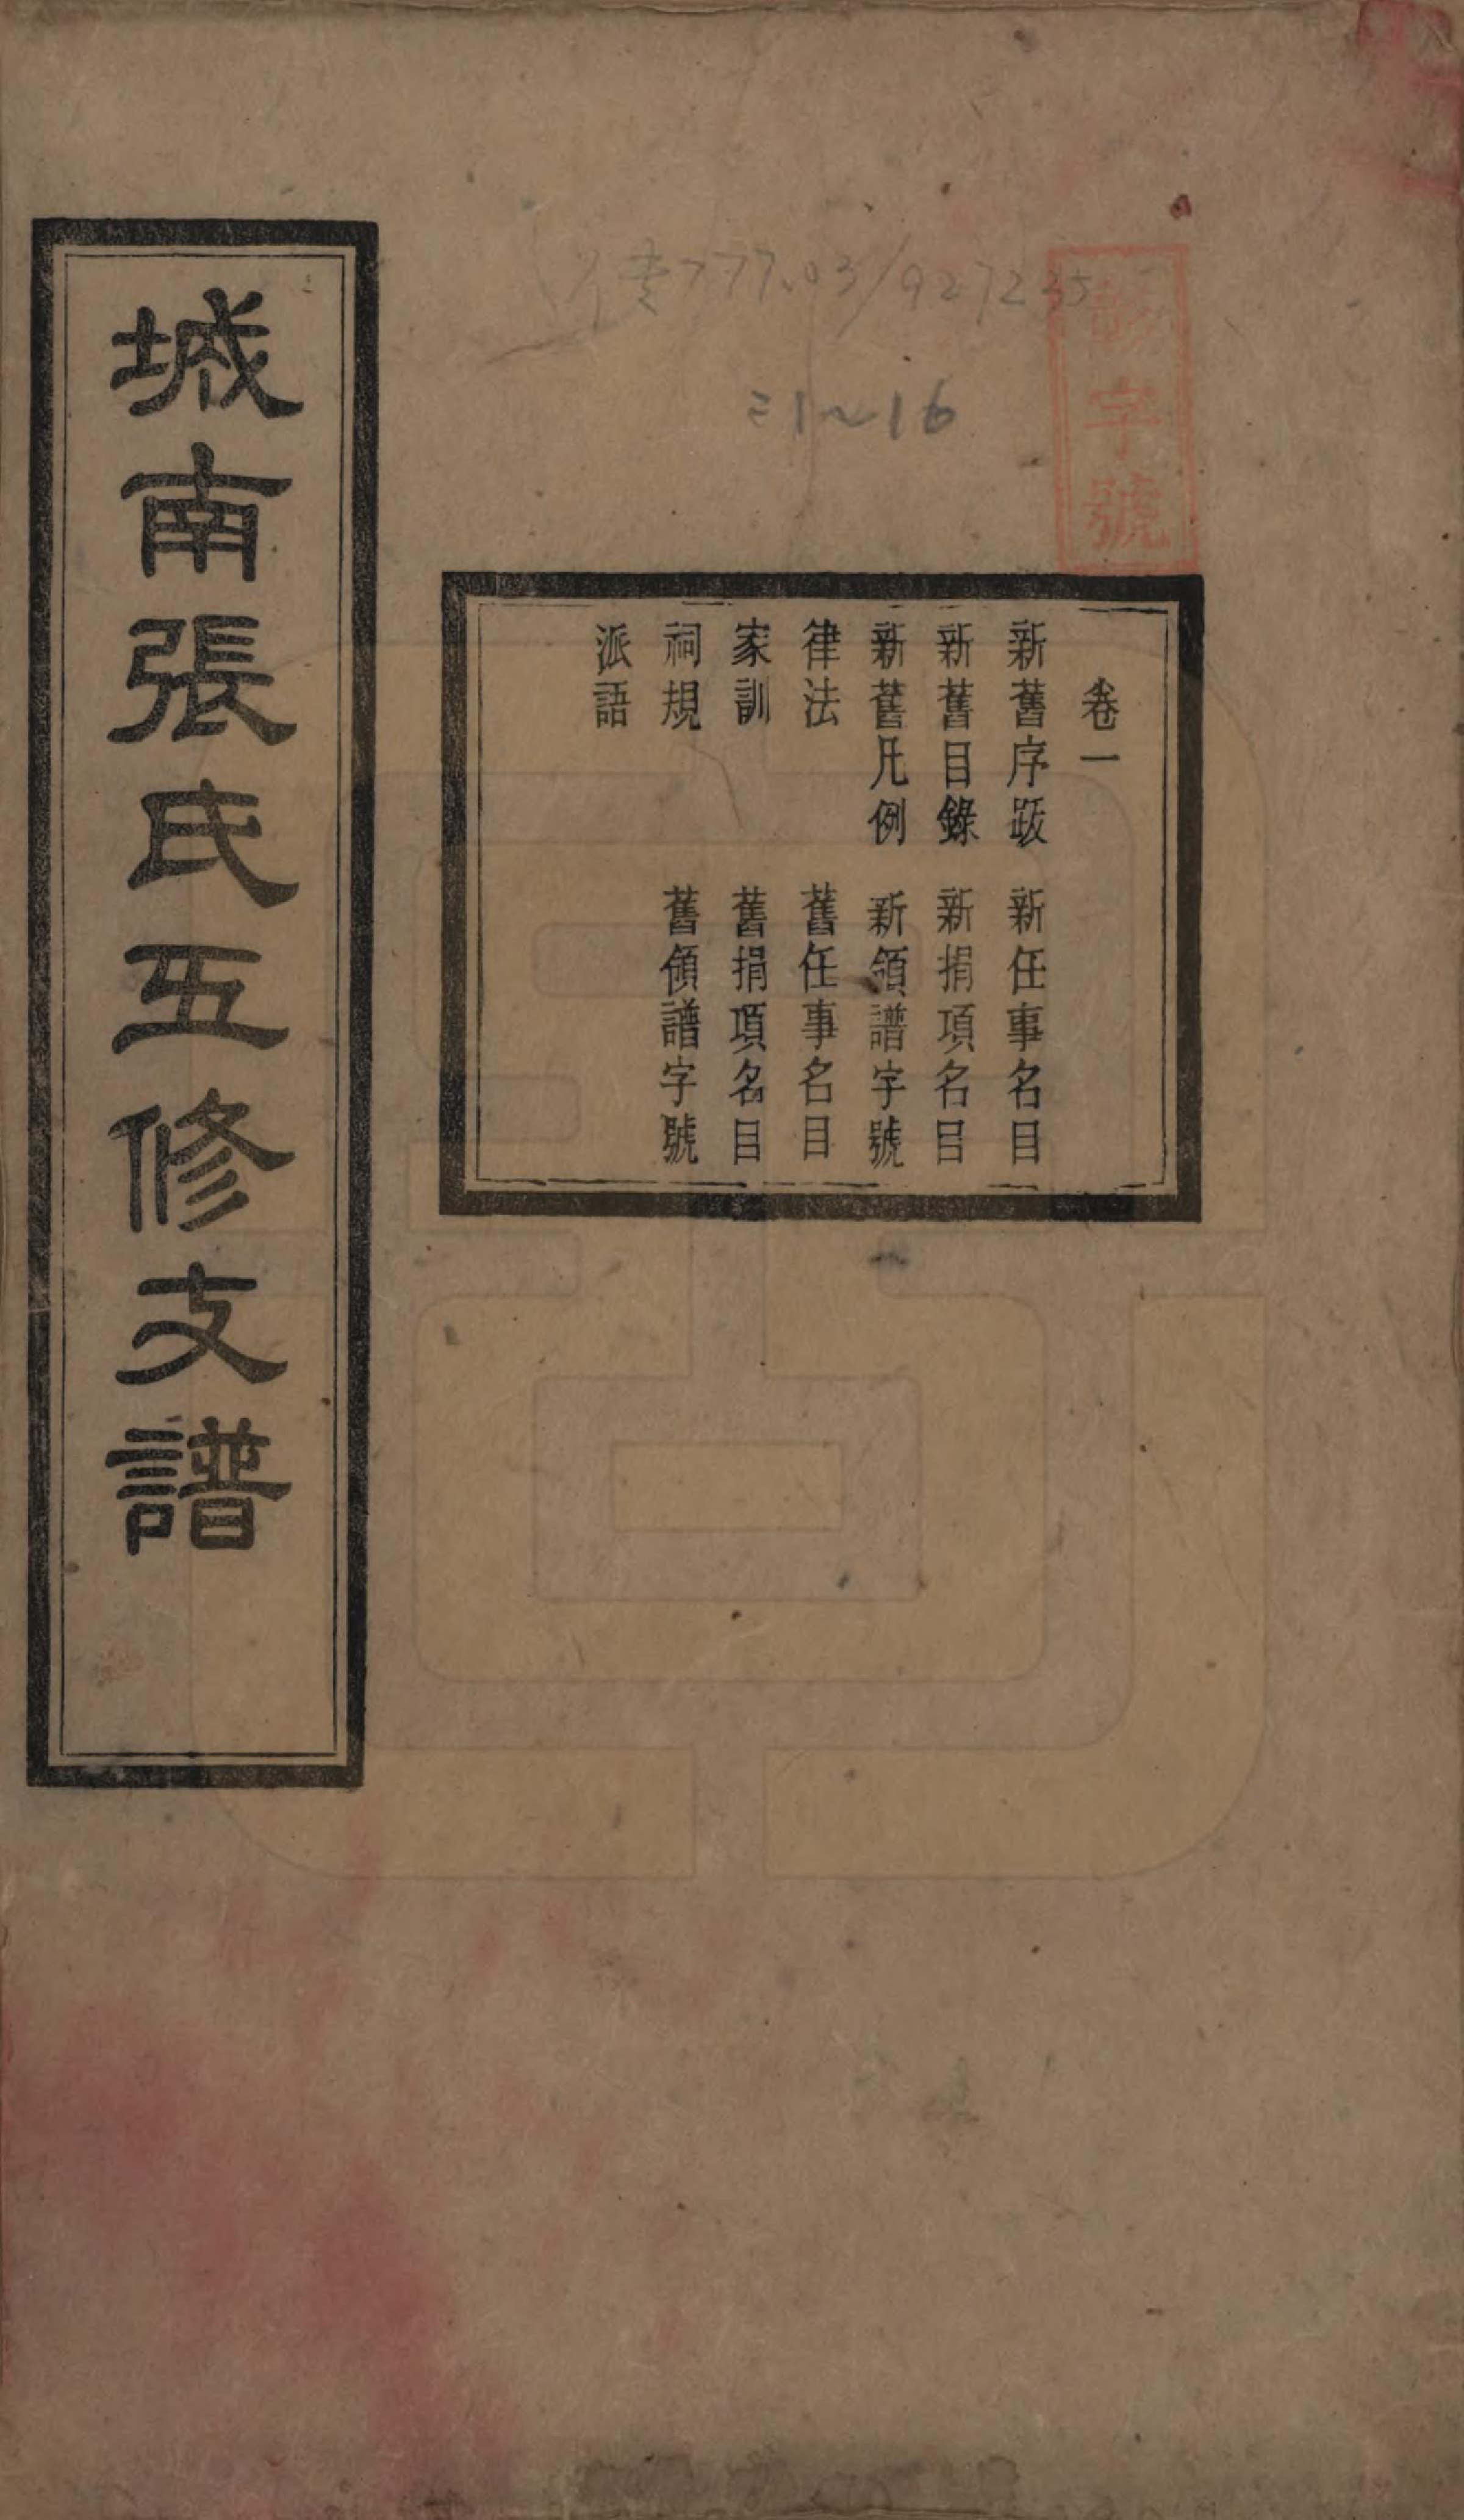 字號
777.03/927235
:1~16
卷一
新舊序跋　新任事名目
新舊目錄　新捐項名目
新舊凡例　新領譜字號
律法　舊任事名目
家訓　舊捐項名目
祠規　舊領譜字號
派語
城南張氏五修支譜